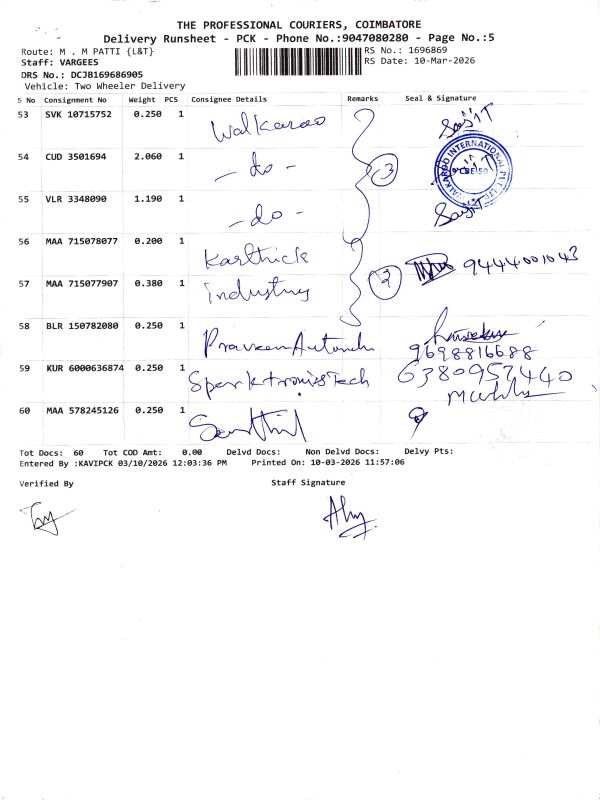 THE PROFESSIONAL COURIERS, COIMBATORE
Delivery Runsheet - PCK - Phone No.:9047080280 - Page No.:5
Route: M . M PATTI {L&T}
RS No.: 1696869
Staff: VARGEES
RS Date: 10-Mar-2026
DRS No.: DCJB169686905
Vehicle: Two Wheeler Delivery
S No Consignment No Weight PCS Consignee Details Remarks Seal & Signature
53 SVK 10715752 0.250 1 Walkaroo
54 CUD 3501694 2.060 1 - do - 3
55 VLR 3348090 1.190 1 - do -
WALKAROO INTERNATIONAL PVT LTD
CBE
56 MAA 715078077 0.200 1 Karthick
57 MAA 715077907 0.380 1 industry 2 9444001043
58 BLR 150782080 0.250 1
9698816688
59 KUR 6000636874 0.250 1 SparktronissTech 6380957440
60 MAA 578245126 0.250 1 Senthil
Tot Docs: 60 Tot COD Amt: 0.00 Delvd Docs: Non Delvd Docs: Delvy Pts:
Entered By :KAVIPCK 03/10/2026 12:03:36 PM Printed On: 10-03-2026 11:57:06
Verified By Staff Signature